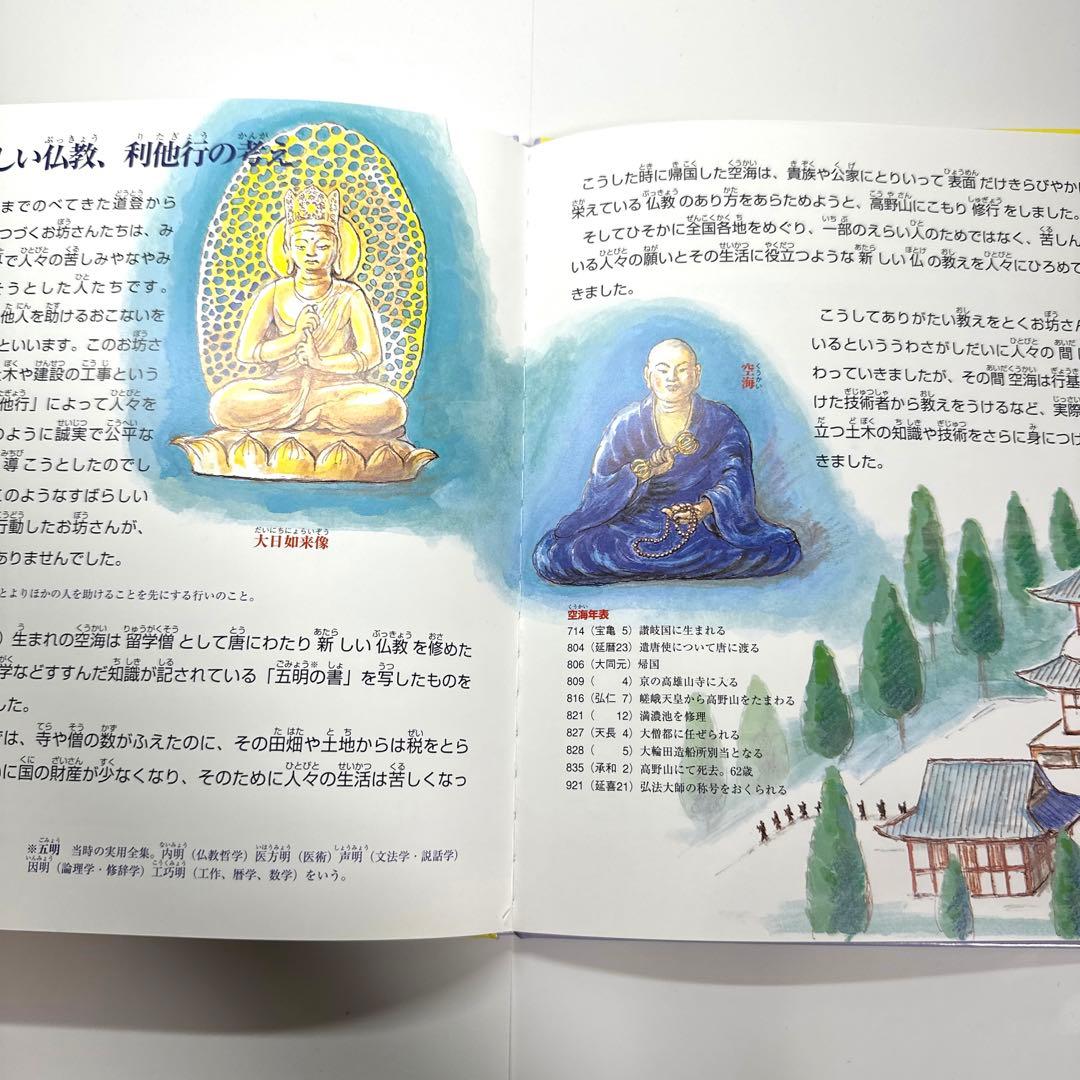 しい仏教、利他行の考え
までのべてきた道登から
つづくお坊さんたちは、み
で人々の苦しみやなやみ
そうとした人たちです。
他人を助けるおこないを
といいます。このお坊さ
木や建設の工事という
他行」によって人々を
のように誠実で公平な
導こうとしたのでし
このようなすばらしい
行動したお坊さんが、
ありませんでした。
とよりほかの人を助けることを先にする行いのこと。
大日如来像
）生まれの空海は留学僧として唐にわたり新しい仏教を修めた
学などすすんだ知識が記されている「五明の書」を写したものを
した。
では、寺や僧の数がふえたのに、その田畑や土地からは税をとら
に国の財産が少なくなり、そのために人々の生活は苦しくなっ
※五明　当時の実用全集。内明（仏教哲学）医方明（医術）声明（文法学・説話学）
因明（論理学・修辞学）工巧明（工作、暦学、数学）をいう。
こうした時に帰国した空海は、貴族や公家にとりいって表面だけきらびやか
栄えている仏教のあり方をあらためようと、高野山にこもり修行をしました。
そしてひそかに全国各地をめぐり、一部のえらい人のためではなく、苦しん
いる人々の願いとその生活に役立つような新しい仏の教えを人々にひろめて
きました。
こうしてありがたい教えをとくお坊さん
いるといううわさがしだいに人々の間
わっていきましたが、その間空海は行基
けた技術者から教えをうけるなど、実際
立つ土木の知識や技術をさらに身につけ
きました。
空海
空海年表
714（宝亀 5）讃岐国に生まれる
804（延暦23）遣唐使について唐に渡る
806（大同元）帰国
809（　　4）京の高雄山寺に入る
816（弘仁 7）嵯峨天皇から高野山をたまわる
821（　　12）満濃池を修理
827（天長 4）大僧都に任ぜられる
828（　　5）大輪田造船所別当となる
835（承和 2）高野山にて死去。62歳
921（延喜21）弘法大師の称号をおくられる